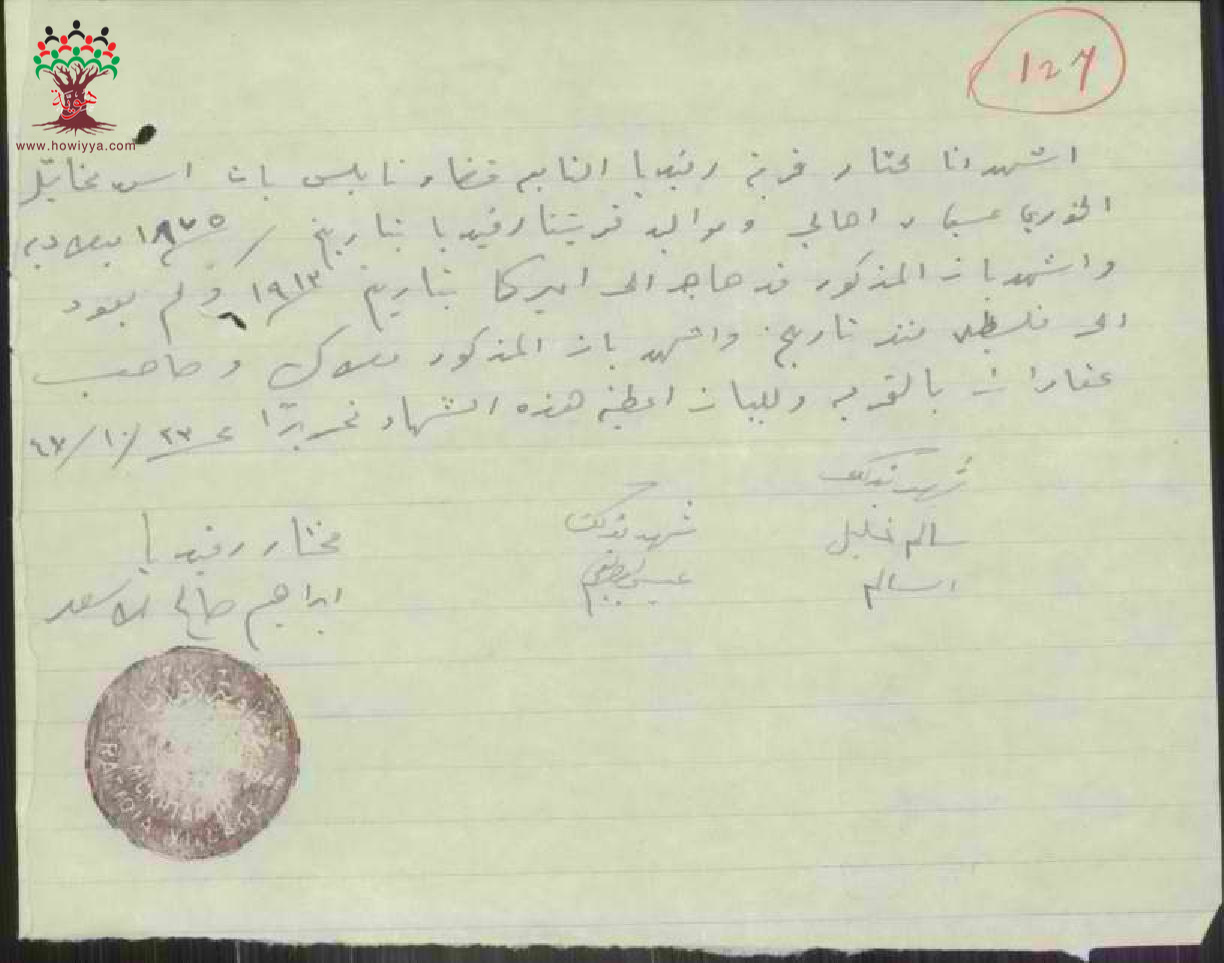 127
هوية
www.howiyya.com
اشهد انا مختار قرية رفيديا التابعه قضاء نابلس بان
الخوري من اهالي ومواليد قريتنا رفيديا بتاريخ / ١٨٧٥ ميلاديه
واشهد بان المذكور قد هاجر الى اميركا بتاريخ ١٩١٣ ولم يعود
الى فلسطين منذ تاريخه واشهد بان المذكور ملاك وصاحب
عقارات بالقريه وللبيان اعطيته هذه الشهاده تحريرًا في ٢٣/١٠/٤٧
شهد بذلك
سالم خليل
السالم
شهد بذلك
عيسى
مختار رفيديا
ابراهيم صالح الاسعد
VILLAGE